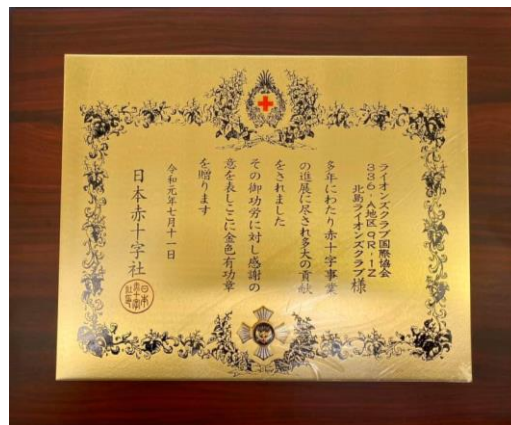 ライオンズクラブ国際協会
336-A地区9R-1Z
北島ライオンズクラブ様
多年にわたり赤十字事業
の進展に尽され多大の貢献
をされました
その御功労に対し感謝の
意を表しここに金色有功章
を贈ります
令和元年七月十一日
日本赤十字社